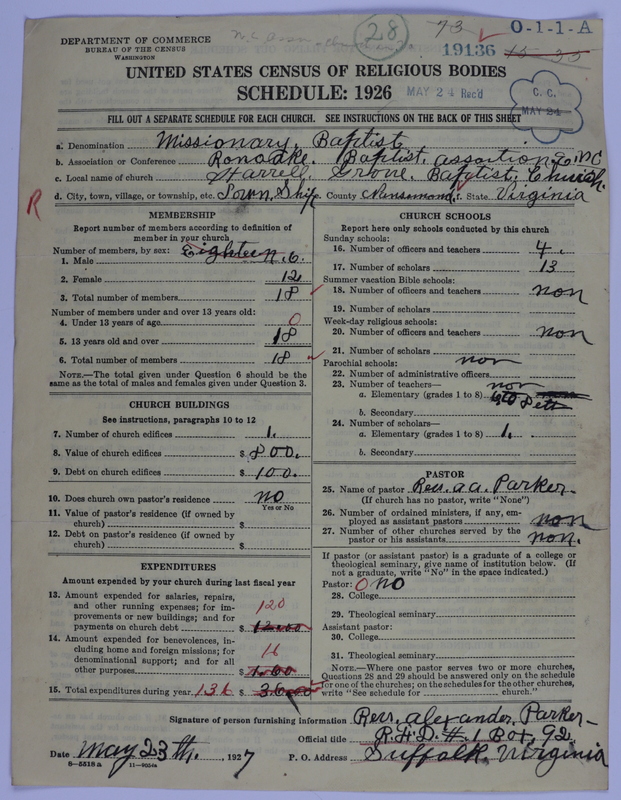 DEPARTMENT OF COMMERCE
BUREAU OF THE CENSUS
WASHINGTON
28
73
O-1-1-A
19136
UNITED STATES CENSUS OF RELIGIOUS BODIES
SCHEDULE: 1926
MAY 24 Rec'd
C. C.
MAY 24
FILL OUT A SEPARATE SCHEDULE FOR EACH CHURCH. SEE INSTRUCTIONS ON THE BACK OF THIS SHEET
a. Denomination Missionary. Baptist
b. Association or Conference Ronoake. Baptist. assortion to NC
c. Local name of church Harrell. Grove. Baptist. Church.
d. City, town, village, or township, etc. Town Ship. County Nansumond. f. State Virginia
R
MEMBERSHIP
Report number of members according to definition of
member in your church
Number of members, by sex: Eighteen
1. Male 6.
2. Female 12
3. Total number of members 18
Number of members under and over 13 years old:
4. Under 13 years of age 0
5. 13 years old and over 18
6. Total number of members 18
NOTE.—The total given under Question 6 should be
same as the total of males and females given under Question 3.
CHURCH BUILDINGS
See instructions, paragraphs 10 to 12
7. Number of church edifices 1.
8. Value of church edifices $ 800.
9. Debt on church edifices $ 100.
10. Does church own pastor's residence no
Yes or No
11. Value of pastor's residence (if owned by
church) $
12. Debt on pastor's residence (if owned by
church) $
EXPENDITURES
Amount expended by your church during last fiscal year
13. Amount expended for salaries, repairs,
and other running expenses; for im-
provements or new buildings; and for
payments on church debt $
120
14. Amount expended for benevolences, in-
cluding home and foreign missions; for
denominational support; and for all
other purposes $
16
15. Total expenditures during year 136 $
CHURCH SCHOOLS
Report here only schools conducted by this church
Sunday schools:
16. Number of officers and teachers 4.
17. Number of scholars 13
Summer vacation Bible schools:
18. Number of officers and teachers non
19. Number of scholars
Week-day religious schools:
20. Number of officers and teachers non
21. Number of scholars
Parochial schools: non
22. Number of administrative officers
23. Number of teachers— non
a. Elementary (grades 1 to 8)
b. Secondary
24. Number of scholars—
a. Elementary (grades 1 to 8) 1.
b. Secondary
PASTOR
25. Name of pastor Rev. a a. Parker
(If church has no pastor, write "None")
26. Number of ordained ministers, if any, em-
ployed as assistant pastors non
27. Number of other churches served by the
pastor or his assistants non.
If pastor (or assistant pastor) is a graduate of a college or
theological seminary, give name of institution below. (If
not a graduate, write "No" in the space indicated.)
Pastor: O no
28. College
29. Theological seminary
Assistant pastor:
30. College
31. Theological seminary
NOTE.—Where one pastor serves two or more churches,
Questions 28 and 29 should be answered only on the schedule
for one of the churches; on the schedules for the other churches,
write "See schedule for church."
Signature of person furnishing information Rev. alexander. Parker
Official title R.F.D. #. 1 Box. 92.
Date may 23th. 1927 P. O. Address Suffolk. Virginia
8—5518a 11—9054a